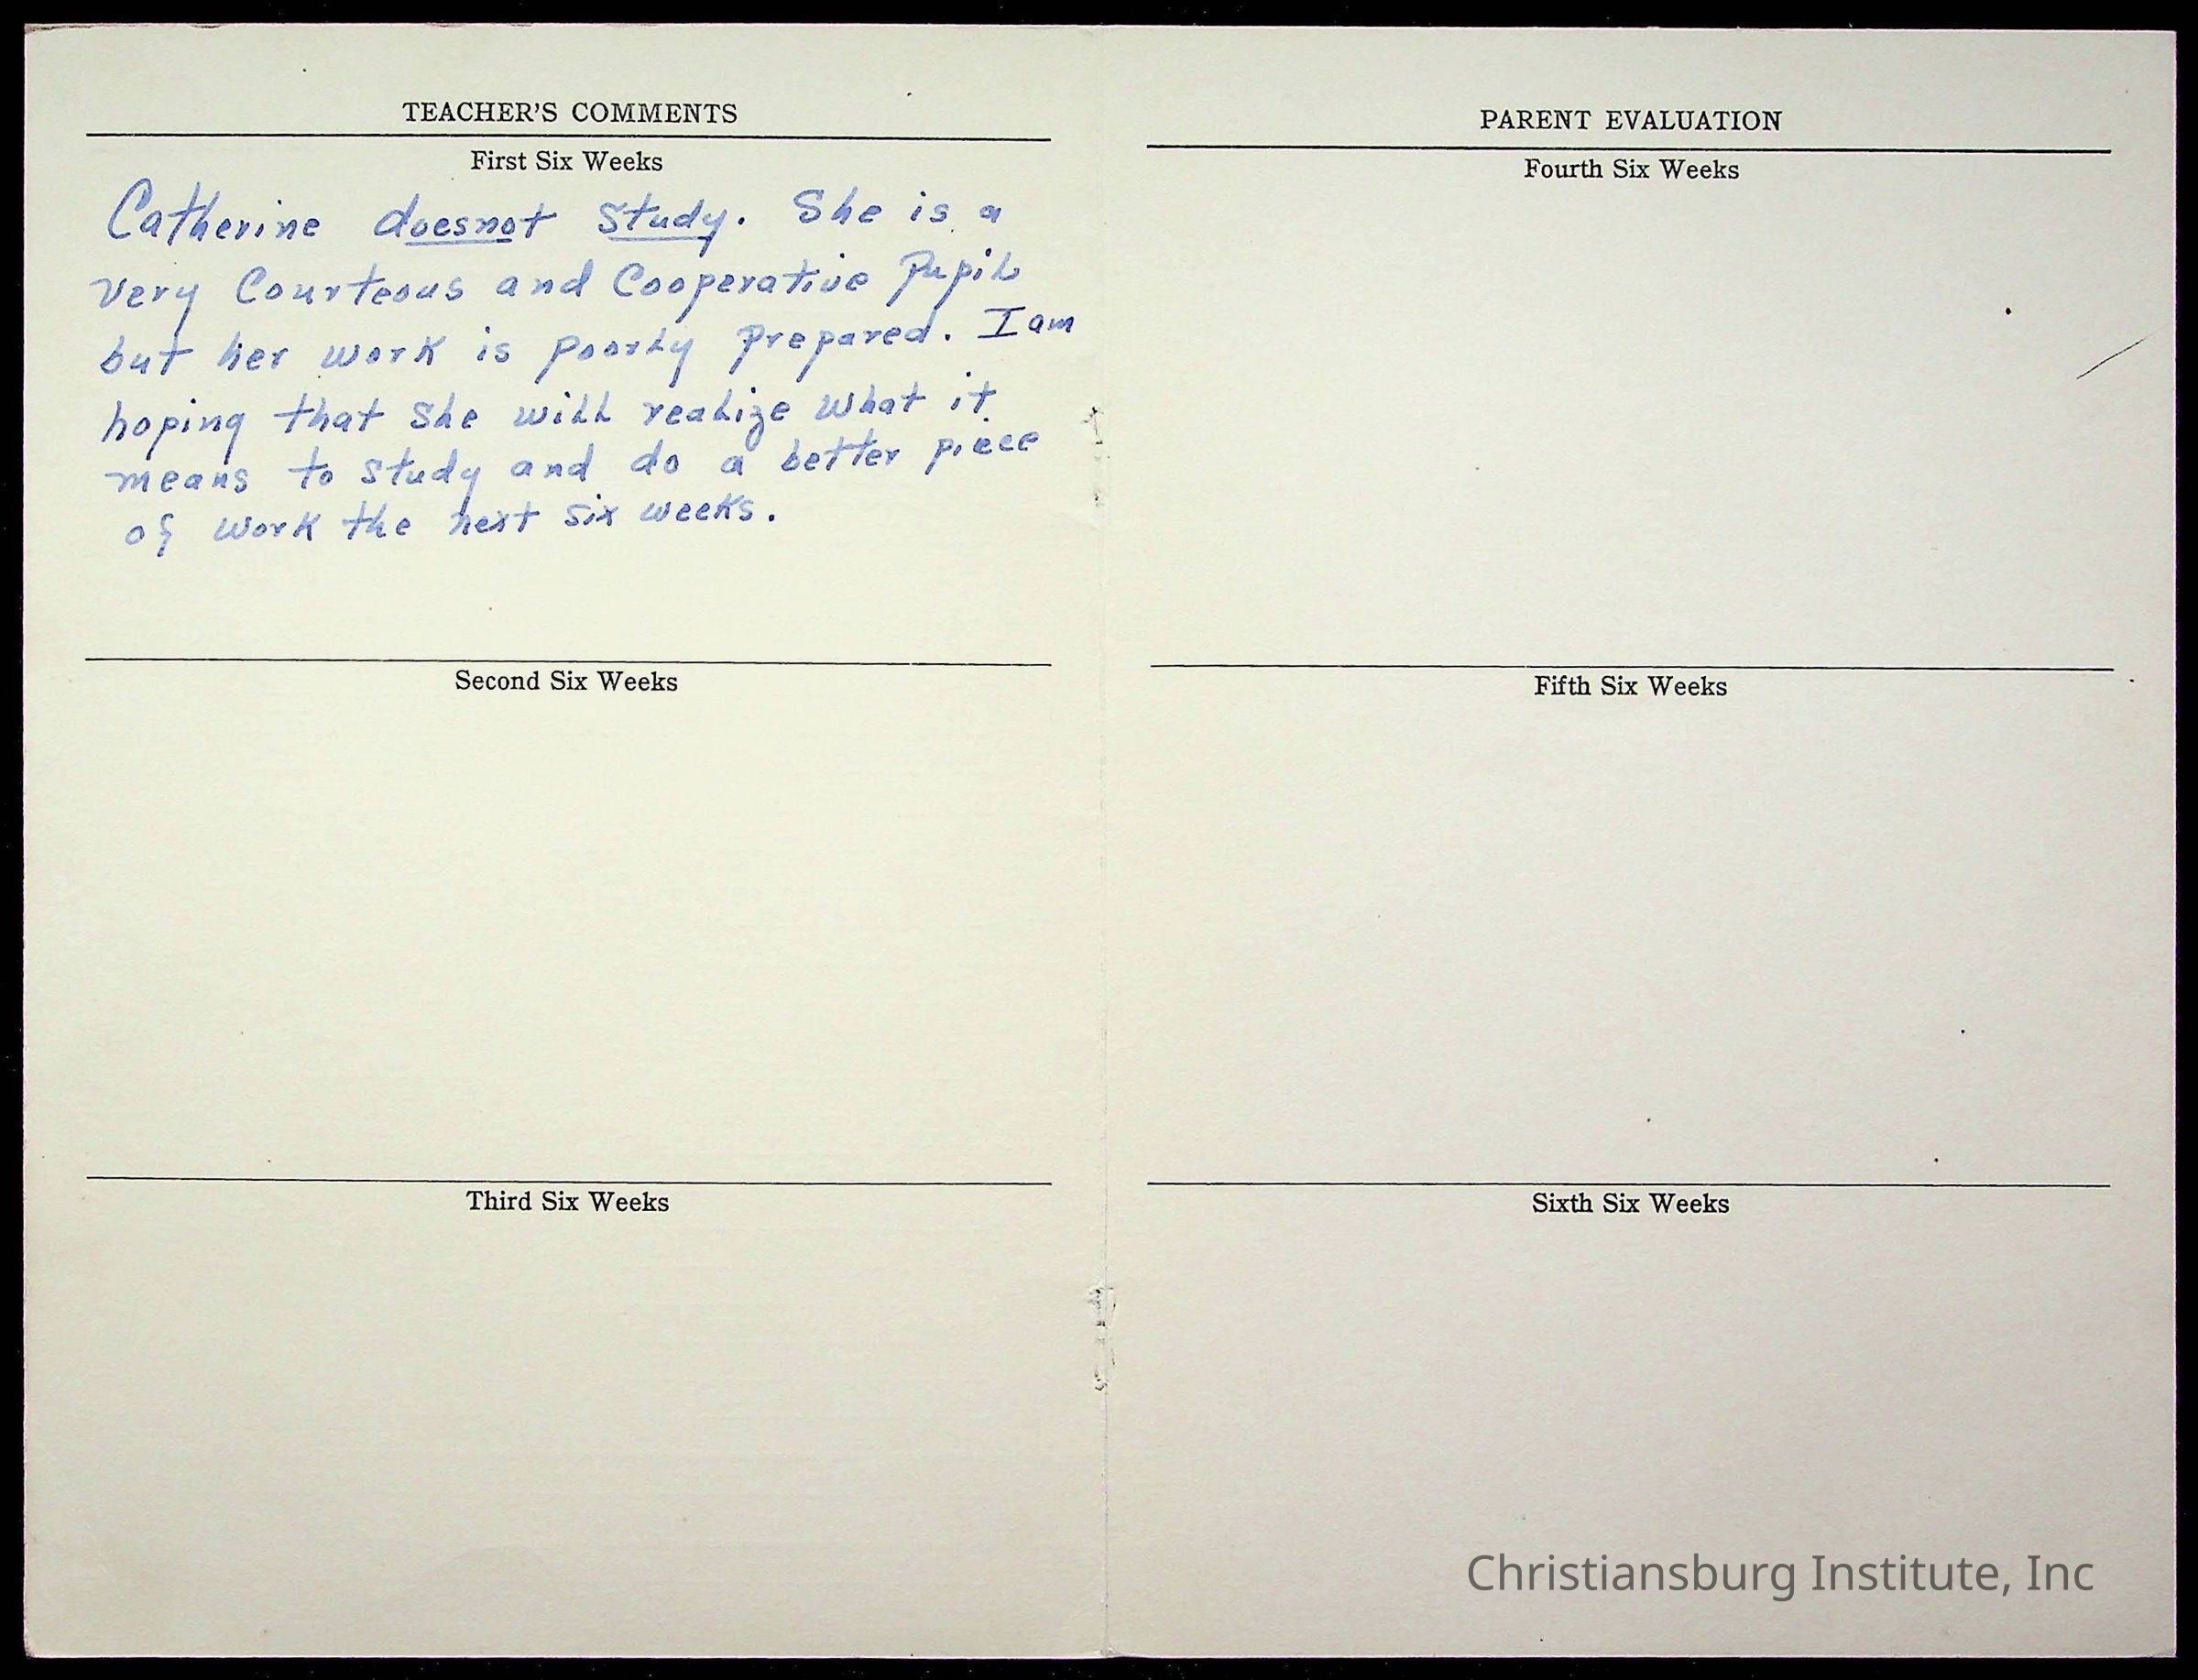 TEACHER'S COMMENTS
First Six Weeks
Catherine doesnot study. She is a
very Courteous and Cooperative Pupil
but her work is poorly prepared. I am
hoping that she will realize what it
means to study and do a better piece
of work the next six weeks.
Second Six Weeks
Third Six Weeks
PARENT EVALUATION
Fourth Six Weeks
Fifth Six Weeks
Sixth Six Weeks
Christiansburg Institute, Inc